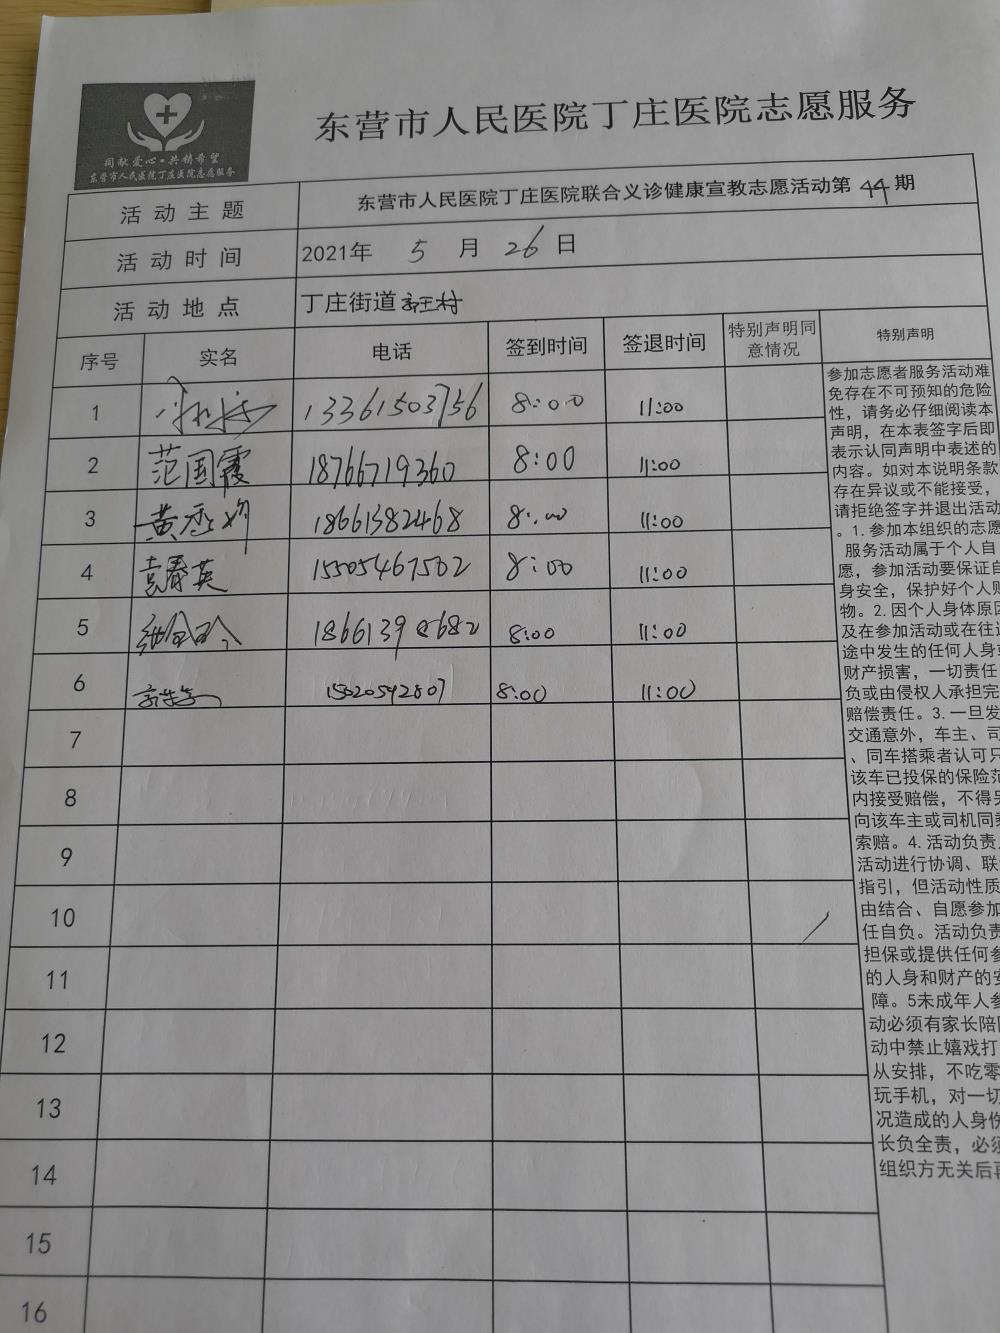 同献爱心·共铸希望
东营市人民医院丁庄医院志愿服务
东营市人民医院丁庄医院志愿服务
活动主题 东营市人民医院丁庄医院联合义诊健康宣教志愿活动第44期
活动时间 2021年 5 月 26 日
活动地点 丁庄街道 村
序号 实名 电话 签到时间 签退时间 特别声明同意情况 特别声明
1 13361503756 8:00 11:00
2 范国霞 18766719360 8:00 11:00
3 黄 18661382468 8:00 11:00
4 袁春英 15505467502 8:00 11:00
5 8:00 11:00
6 15020592807 8:00 11:00
7
8
9
10
11
12
13
14
15
16
参加志愿者服务活动难
免存在不可预知的危险
性，请务必仔细阅读本
声明，在本表签字后即
表示认同声明中表述的
内容。如对本说明条款
存在异议或不能接受，
请拒绝签字并退出活动
。1.参加本组织的志愿
服务活动属于个人自
愿，参加活动要保证自
身安全，保护好个人财
物。2.因个人身体原因
及在参加活动或在往返
途中发生的任何人身或
财产损害，一切责任
负或由侵权人承担完
赔偿责任。3.一旦发
交通意外，车主、司
、同车搭乘者认可只
该车已投保的保险范
内接受赔偿，不得另
向该车主或司机同乘
索赔。4.活动负责
活动进行协调、联
指引，但活动性质
由结合、自愿参加
任自负。活动负责
担保或提供任何参
的人身和财产的安
障。5未成年人参
动必须有家长陪同
动中禁止嬉戏打
从安排，不吃零
玩手机，对一切
况造成的人身伤
长负全责，必须
组织方无关后再